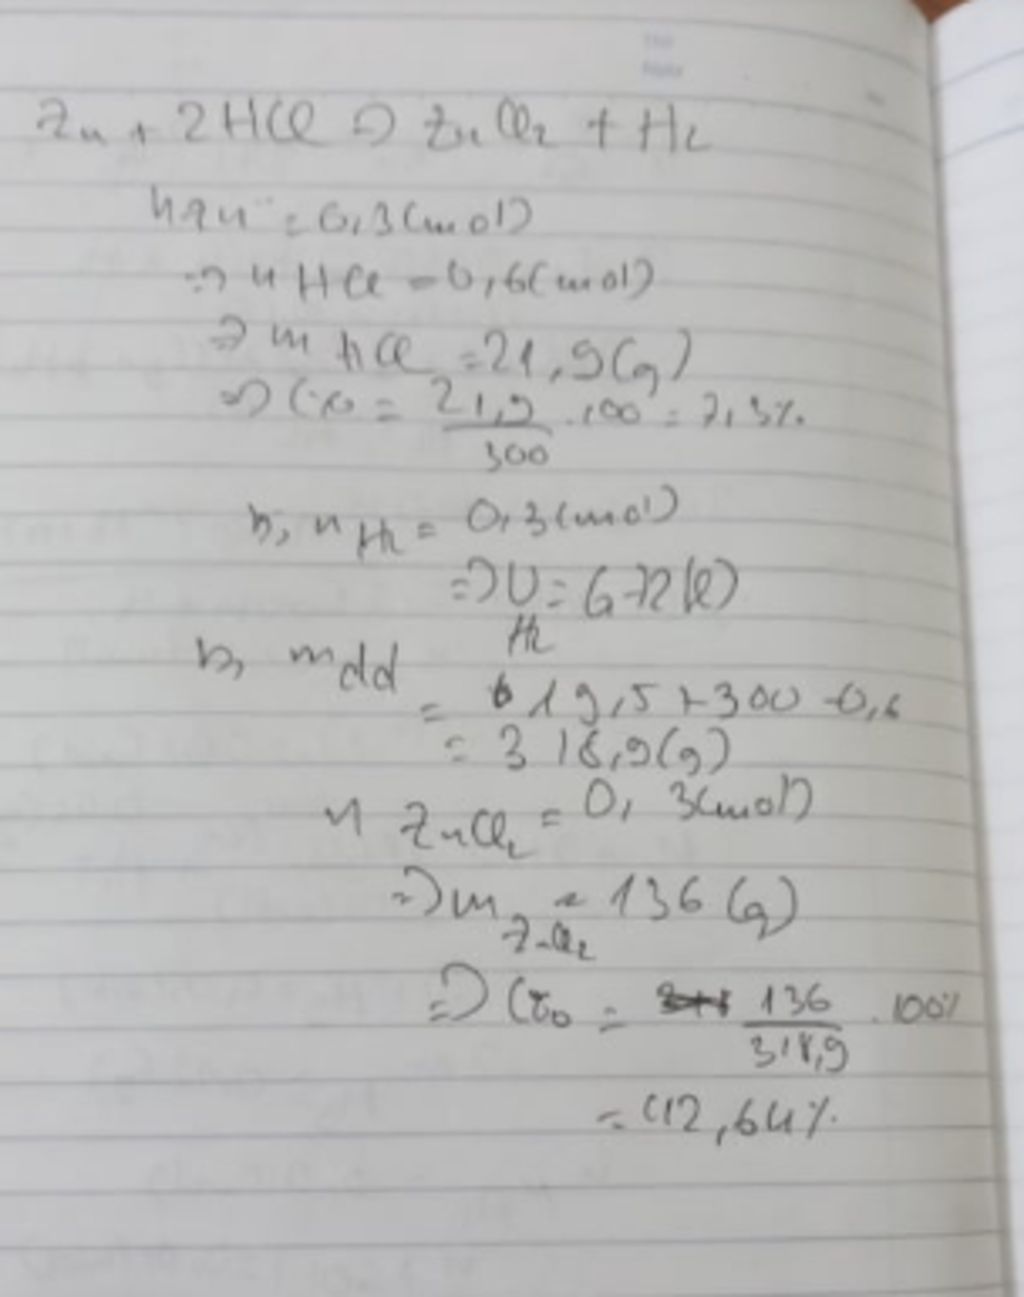 Zn + 2HCl => ZnCl2 + H2
nZn = 0,3(mol)
=> n HCl = 0,6(mol)
=> m HCl = 21,9(g)
=> C% = 21,9/300 .100 = 7,3%
b, n H2 = 0,3(mol)
=> V H2 = 6,72(l)
b, mdd
= 19,5 + 300 - 0,6
= 318,9(g)
n ZnCl2 = 0, 3(mol)
=> m ZnCl2 = 136 (g)
=> C% = 136/318,9 .100%
= 42,64%